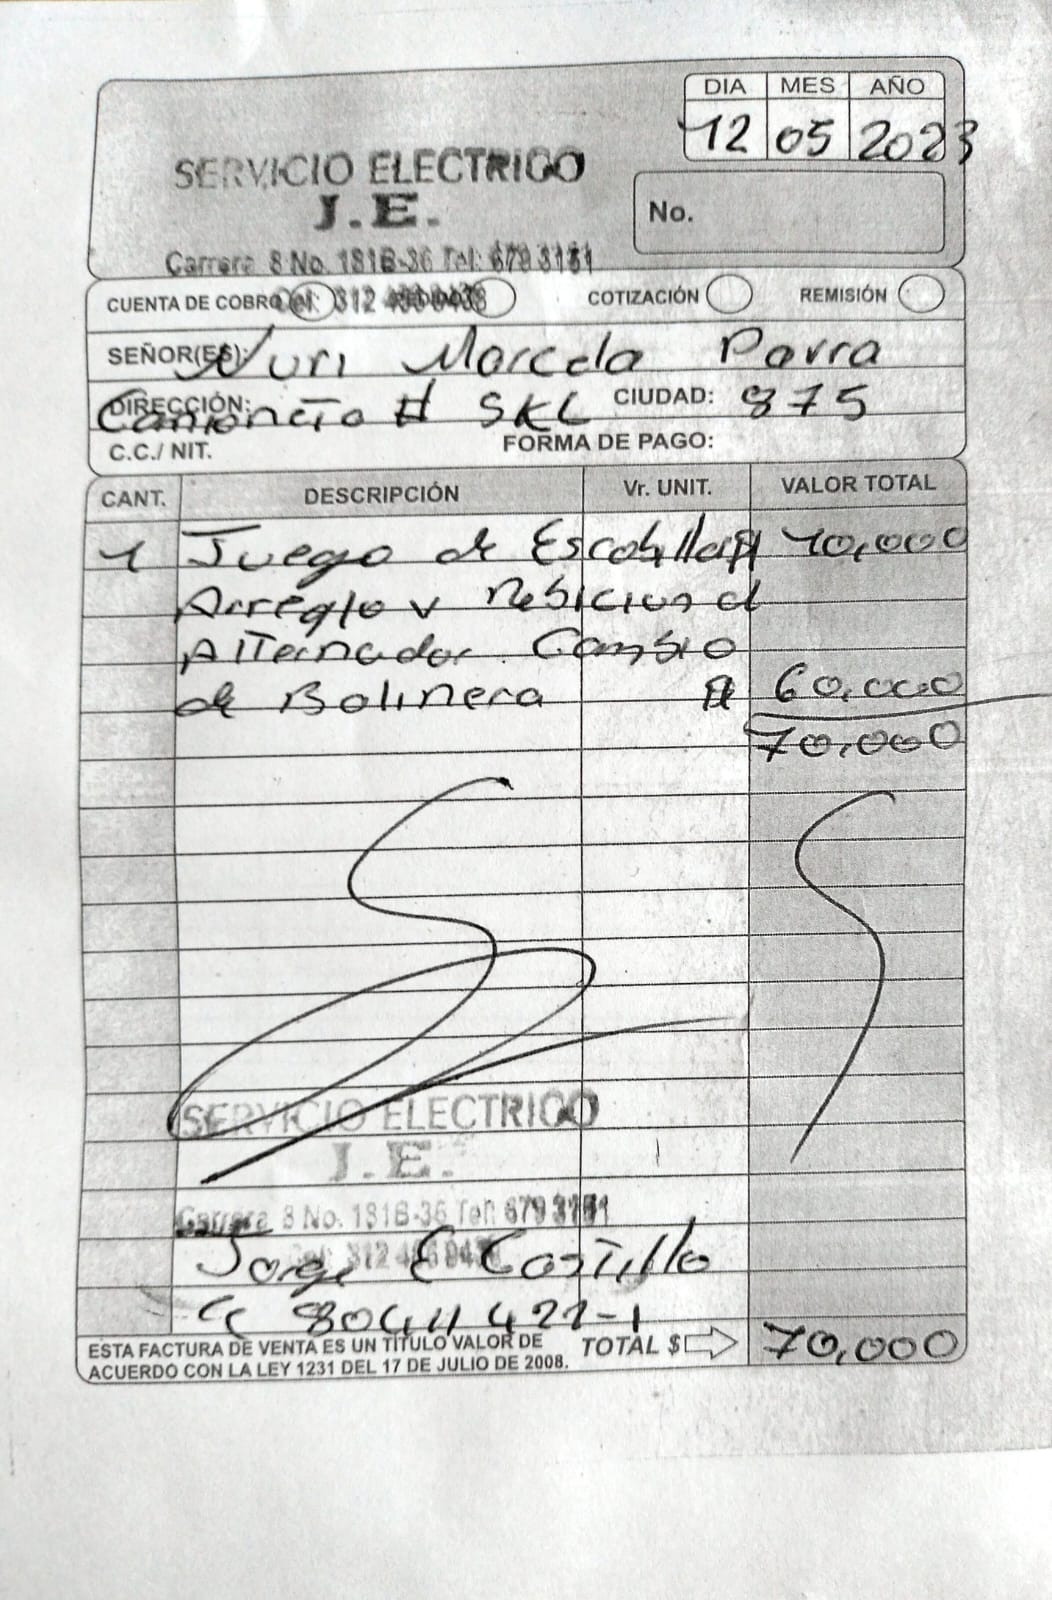 DIA MES AÑO
12 05 2023
SERVICIO ELECTRICO
J.E.
No.
Carrera 8 No. 181B-36 Tel: 679 3151
CUENTA DE COBRO Cel: 312 COTIZACIÓN REMISIÓN
SEÑOR(ES): Nuri Marcela Parra
DIRECCIÓN: Camioneta # SKL CIUDAD: 875
C.C./ NIT. FORMA DE PAGO:
CANT. DESCRIPCIÓN Vr. UNIT. VALOR TOTAL
1 Juego de Escobillas $ 10,000
Arreglo y d
Alternador Cambio
de Bolinera $ 60,000
70,000
SERVICIO ELECTRICO
J.E.
Carrera 8 No. 181B-36 Tel: 679 3151
Cel: 312
Jorge E Castillo
CC 80411421-1
ESTA FACTURA DE VENTA ES UN TÍTULO VALOR DE
ACUERDO CON LA LEY 1231 DEL 17 DE JULIO DE 2008.
TOTAL $ 70,000